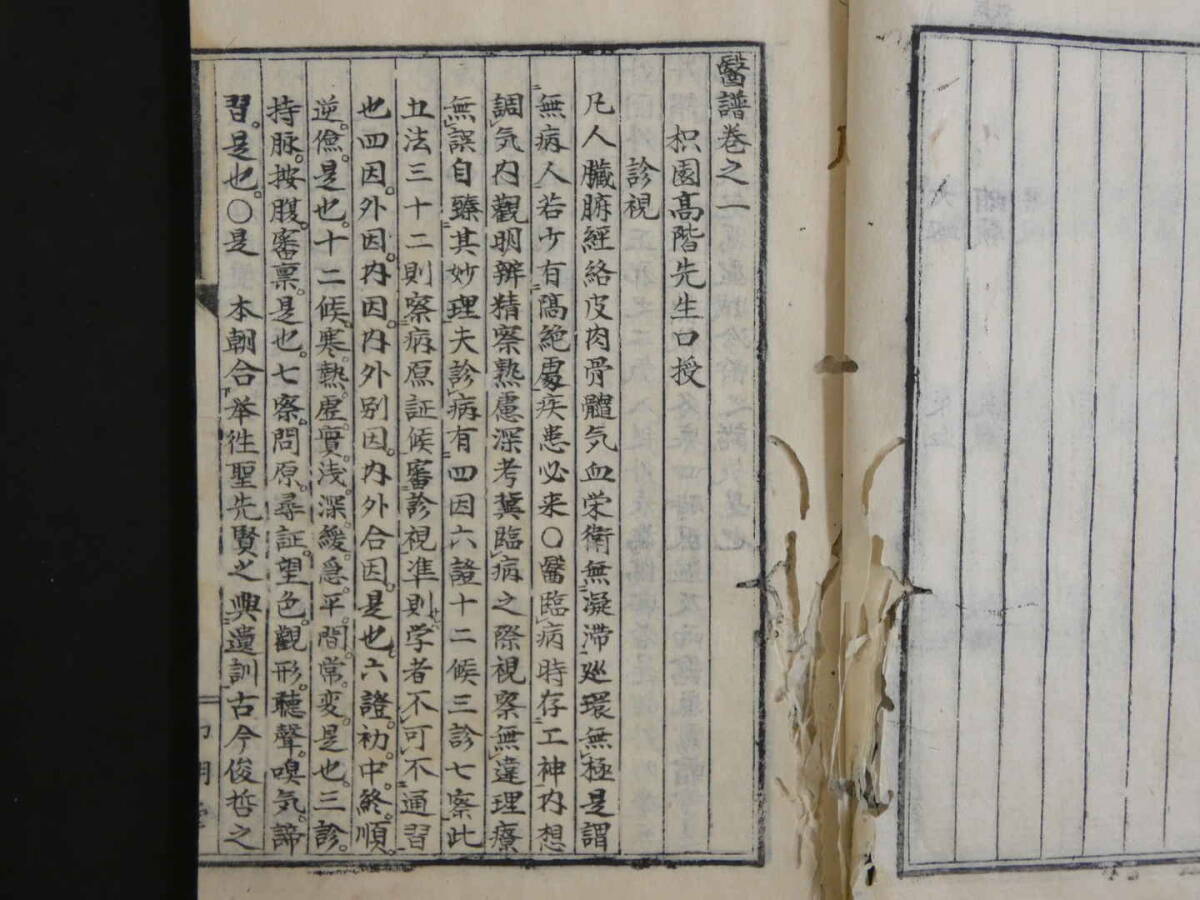 醫譜巻之一
枳園髙階先生口授
診視
凡人臓腑經絡皮肉骨髓気血栄衛無凝滞廵環無極是謂
無病人若少有隔絶處疾患必来〇醫臨病時存工神内想
調気内觀明辨精察熟慮深考冀臨病之際視察無違理療
無誤自臻其妙理夫診病有四因六證十二候三診七察此
五法三十二則察病原証候審診視準則学者不可不通習
也四因。外因。内因。内外别因。内外合因。是也六證。初。中。終。順。
逆。儉。是也。十二候。寒。熱。虚。實。浅。深。緩。急。平。間。常。変。是也。三診。
持脉。按腹。審禀。是也。七察。問原。尋証。望色。觀形。聴聲。嗅気。諦
習。是也。〇是　本朝合举徃聖先賢之典遺訓古今俊哲之